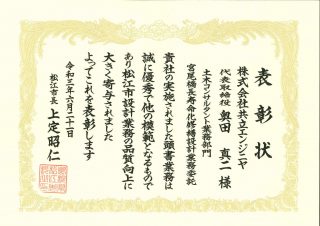 表彰状
株式会社共立エンジニヤ
代表取締役 奥田 真二 様
土木コンサルタント業務部門
宮尾橋長寿命化修繕設計業務委託
貴社の実施されました頭書業務は
誠に優秀で他の模範となるもので
あり松江市設計業務の品質向上に
大きく寄与されました
よってこれを表彰します
令和三年六月二十一日
松江市長 上定昭仁